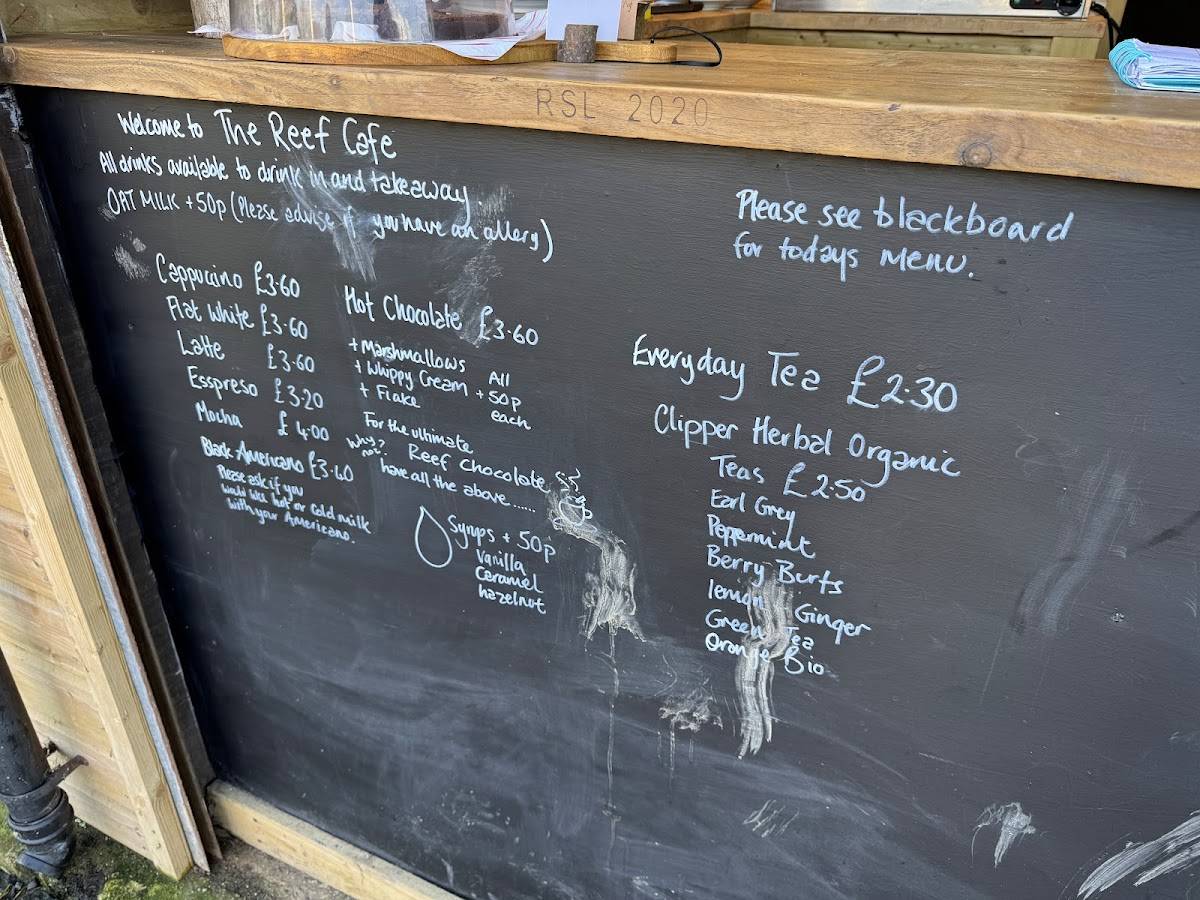 RSL 2020
Welcome to The Reef Cafe
All drinks available to drink in and takeaway.
OAT MILK + 50p (Please advise if you have an allergy)
Cappucino £3.60
Flat White £3.60
Latte £3.60
Esspreso £3.20
Mocha £4.00
Black Americano £3.40
Please ask if you
would like hot or cold milk
with your Americano.
Hot Chocolate £3.60
+ Marshmallows
+ Whippy Cream
+ Flake
All
+ 50p
each
For the ultimate
Why not? Reef Chocolate
have all the above......
Syrups + 50p
Vanilla
Caramel
hazelnut
Please see blackboard
for todays Menu.
Everyday Tea £2.30
Clipper Herbal Organic
Teas £2.50
Earl Grey
Peppermint
Berry Burts
lemon Ginger
Green Tea
Orange Bio